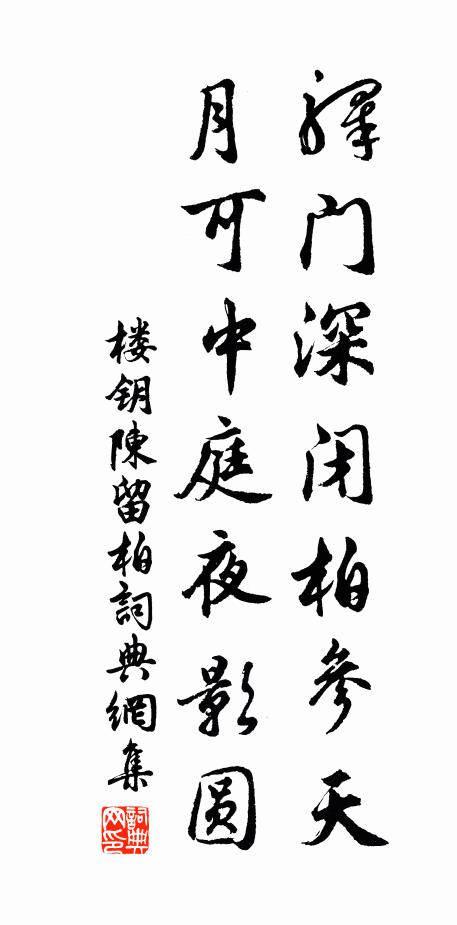 驛门深闭柏參天
月可中庭夜影圆
楼钥陳留柏詞典網集
詞典
网印